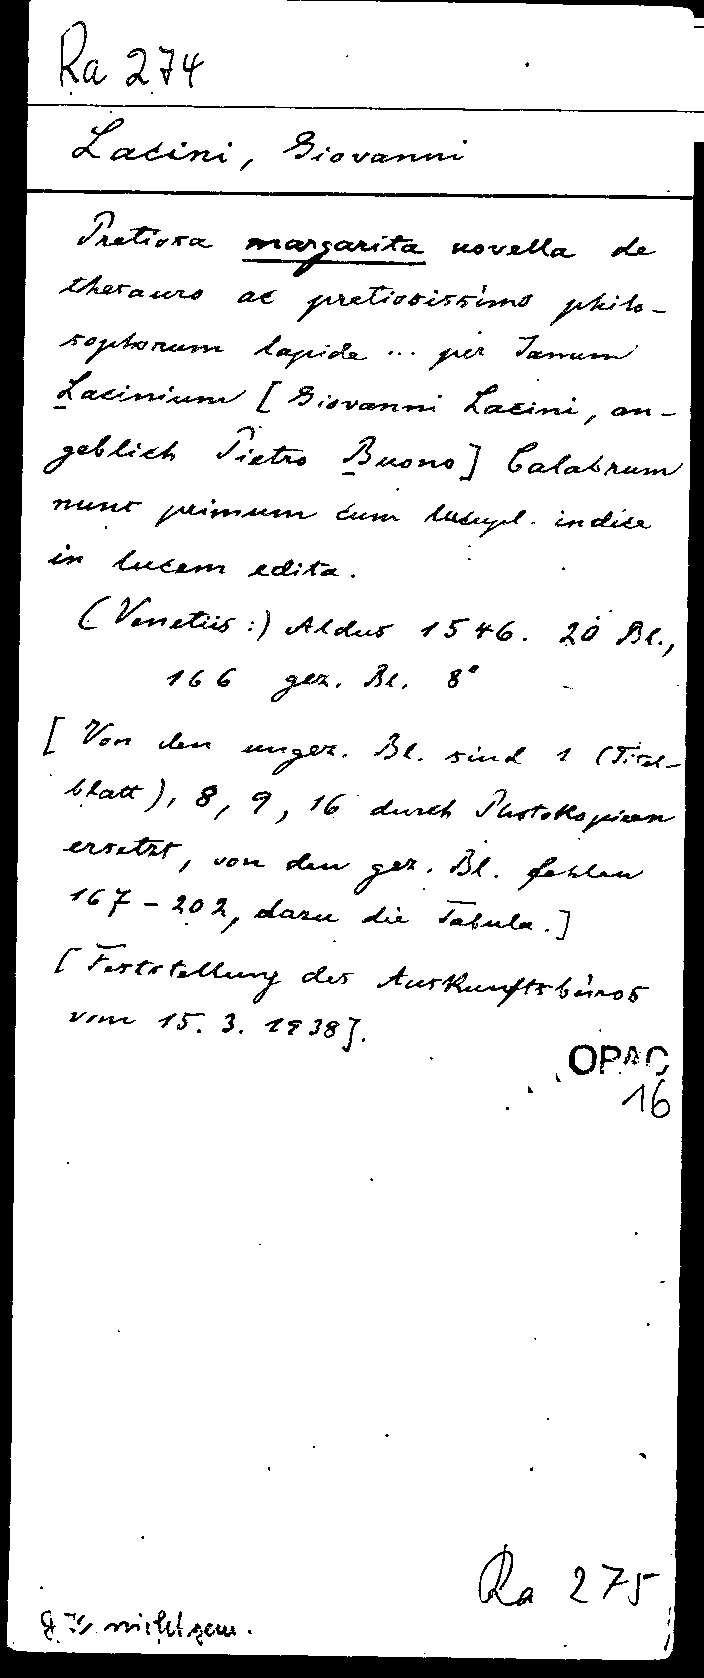 Ra 274
Lacini, Giovanni
Pretiosa margarita novella de
thesauro ac pretiosissimo philo-
sophorum lapide ... per Janum
Lacinium [Giovanni Lacini, an-
geblich Pietro Buono] Calabrum
nunc primum cum lucupl. indice
in lucem edita.
(Venetiis:) Aldus 1546. 20 Bl.,
166 gez. Bl. 8°
[Von den ungez. Bl. sind 1 (Titel-
blatt), 8, 9, 16 durch Photokopieen
ersetzt, von den gez. Bl. fehlen
167-202, dazu die Tabula.]
[Feststellung des Auskunftsbüros
vom 15. 3. 1938].
OPAC
16
Ra 275
nicht gem.